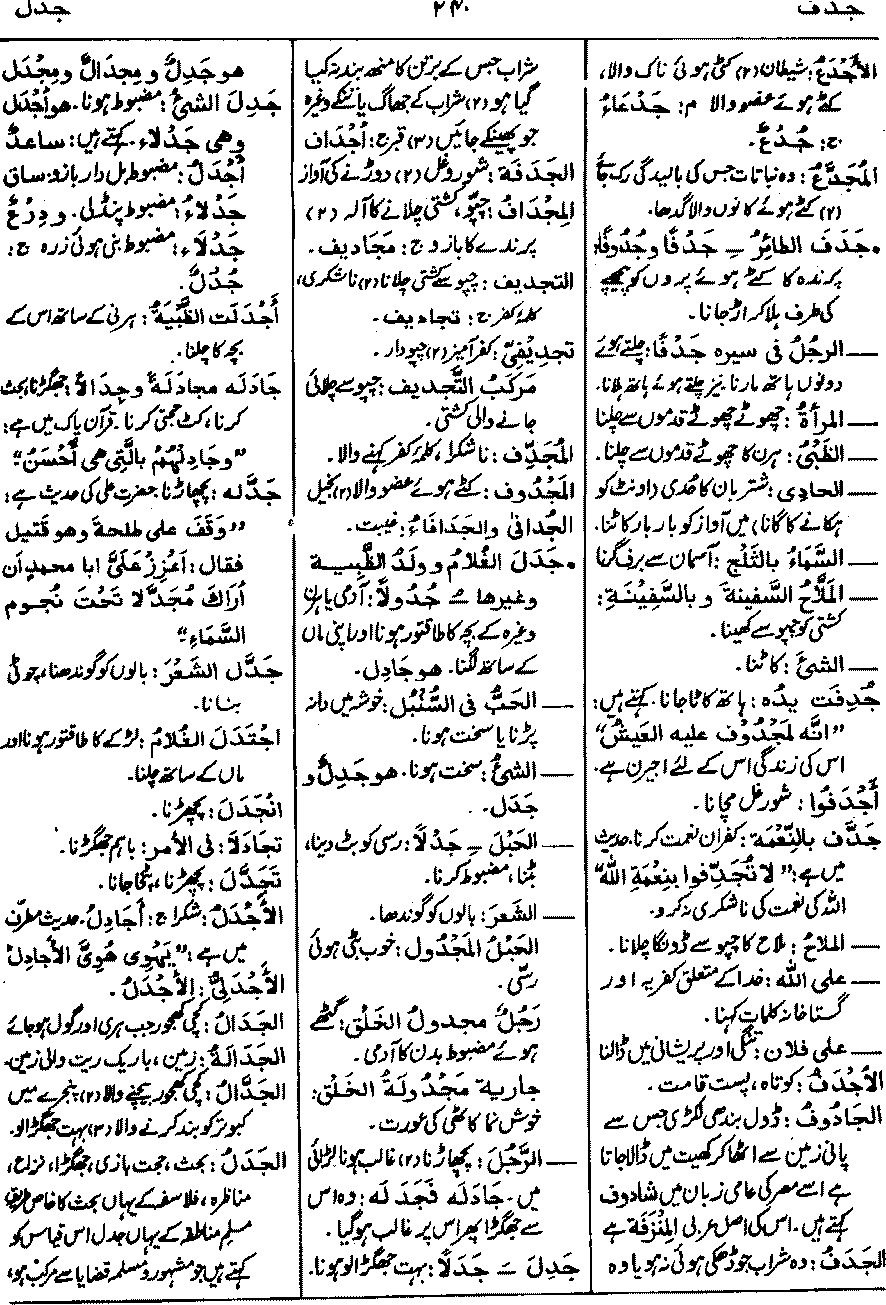 جدف
۲۴۰
جدل
الأجْدَعُ: شیطان (۲) کٹی ہوئی ناک والا،
کٹے ہوئے عضو والا م: جَدْعَاءُ
ج: جُدْعٌ۔
المُجَدَّعُ: وہ نباتات جس کی بالیدگی رک جائے
(۲) کٹے ہوئے کانوں والا گدھا۔
•جَدَفَ الطائرُ ـِ جَدْفًا وجُدُوفًا:
پرندہ کا کٹے ہوئے پروں کو پیچھے
کی طرف ہلا کر اڑ جانا۔
— الرجلُ فی سیرہ جَدْفًا: چلتے ہوئے
دونوں ہاتھ مارنا، تیز چلتے ہوئے ہاتھ ہلانا۔
— المرأۃُ: چھوٹے چھوٹے قدموں سے چلنا
— الظَّبْیُ: ہرن کا چھوٹے قدموں سے چلنا۔
— الحادِی: شتربان کا حُدی (اونٹ کو
ہکانے کا گانا) میں آواز کو بار بار کاٹنا۔
— السَّمَاءُ بالثَّلْجِ: آسمان سے برف گرنا
— المَلَّاحُ السَّفِینۃَ و بالسَّفِیْنَۃِ:
کشتی کو چپو سے کھینا۔
— الشیئَ: کاٹنا۔
جُدِفَت یدُہ: ہاتھ کاٹا جانا۔ کہتے ہیں:
"انَّه لمَجْدُوْفٌ علیہ العَیشُ"
اس کی زندگی اس کے لئے اجیرن ہے۔
أَجْدَفُوا: شور غل مچانا۔
جَدَّفَ بالنِّعْمَۃ: کفران نعمت کرنا۔ حدیث
میں ہے: "لَا تُجَدِّفوا بِنِعْمَۃِ اللّٰہِ"
اللہ کی نعمت کی ناشکری نہ کرو۔
— الملاحُ: ملاح کا چپو سے ڈونگا چلانا۔
— علی اللّٰہ: خدا کے متعلق کفریہ اور
گستاخانہ کلمات کہنا۔
— علی فلان: تنگی اور پریشانی میں ڈالنا
الأَجْدَفُ: کوتاہ، پست قامت۔
الجَادُوفُ: ڈول بندھی لکڑی جس سے
پانی زمین سے اٹھا کر کھیت میں ڈالا جاتا
ہے اسے مصر کی عامی زبان میں شادوف
کہتے ہیں۔ اس کی اصل عربی المِنْزَفَۃ ہے
الجَدَفُ: وہ شراب جو ڈھکی ہوئی نہ ہو یا وہ
شراب جس کے برتن کا منھ بند نہ کیا
گیا ہو (۲) شراب کے جھاگ یا تنکے وغیرہ
جو پھینکے جائیں (۳) قبر ج: أجْدَاف
الجَدَفَۃ: شور و غل (۲) دوڑنے کی آواز
المِجْدَافُ: چپّو، کشتی چلانے کا آلہ (۲)
پرندے کا بازو ج: مَجَادِیف۔
التجدیف: چپو سے کشتی چلانا (۲) ناشکری،
کلمۂ کفر ج: تجادیف۔
تَجدِیفیّ: کفر آمیز (۲) چپودار۔
مَرکَبُ التَّجدیف: چپو سے چلائی
جانے والی کشتی۔
المُجَدِّف: ناشکرا، کلمۂ کفر کہنے والا۔
المَجْدُوف: کٹے ہوئے عضو والا (۲) بخیل
الجُدافیٰ والجَدَافَاءُ: غنیمت۔
•جَدَلَ الغُلَامُ و ولَدُ الظَّبِیۃ
وغیرھا ـُ جُدُولاً: آدمی یا ہرن
وغیرہ کے بچہ کا طاقتور ہونا اور اپنی ماں
کے ساتھ لگنا۔ ھو جَادِل۔
— الحَبُّ فی السُّنْبُل: خوشہ میں دانہ
پڑنا یا سخت ہونا۔
— الشیئُ: سخت ہونا۔ ھو جَدِلٌ و
جَدْل۔
— الحَبْلَ ـِ جَدْلاً: رسی کو بٹ دینا،
بٹنا، مضبوط کرنا۔
— الشَّعرَ: بالوں کو گوندھا۔
الحَبْلُ المَجْدُول: خوب بٹی ہوئی
رسّی۔
رَجُلٌ مجدولُ الخَلْق: گٹھے
ہوئے مضبوط بدن کا آدمی۔
جاریۃ مَجْدُولَۃُ الخَلْق:
خوش نما کاٹھی کی عورت۔
— الرَّجُلَ: پچھاڑنا (۲) غالب ہونا لڑائی
میں۔ جَادَلَہ فَجَدَلَہ: وہ اس
سے جھگڑا پھر اس پر غالب ہوگیا۔
جَدِلَ ـَ جَدَلاً: بہت جھگڑالو ہونا۔
ھو جَدِلٌ و مِجدَالٌ و مِجْدَل
جَدِلَ الشیئُ: مضبوط ہونا۔ ھو أَجْدَل
وھی جَدْلاء۔ کہتے ہیں: ساعدٌ
أَجْدَلُ: مضبوط بل دار بازو، ساق
جَدْلاءُ: مضبوط پنڈلی۔ و دِرْعٌ
جَدْلَاء: مضبوط بنی ہوئی زرہ ج:
جُدْلٌ۔
أَجْدَلَت الظَّبْیَۃُ: ہرنی کے ساتھ اس کے
بچہ کا چلنا۔
جَادَلَہ مجادَلَۃً وجِدالاً: جھگڑنا، بحث
کرنا، کٹ حجتی کرنا۔ قرآن پاک میں ہے:
"وجَادِلْہُمْ بالَّتِی ھی أَحْسَنُ"
جَدَّلَہ: پچھاڑنا۔ حضرت علی کی حدیث ہے:
"وَقَفَ علی طلحۃَ وھو قَتیل
فقال: أَعْزِزْ عَلَیَّ ابا محمدٍ أن
أَرَاكَ مُجَدَّلا تَحْتَ نُجوم
السَّمَاءِ"
جَدَّل الشَّعْرَ: بالوں کو گوندھنا، چوٹی
بنانا۔
اجْتَدَلَ الغُلَامُ: لڑکے کا طاقتور ہونا اور
ماں کے ساتھ چلنا۔
انْجَدَلَ: پچھڑنا۔
تجادَلَا: فی الأمر: باہم جھگڑنا۔
تَجَدَّلَ: پچھڑنا، پٹخا جانا۔
الأَجْدَلُ: شکرا ج: أَجَادِلُ۔ حدیث مطرّف
میں ہے: "یَہْوِی ھُوِیَّ الأَجادِلِ"
الأَجْدَلِیُّ: الأَجْدَلُ۔
الجَدَالُ: کچی کھجور جب ہری اور گول ہو جائے
الجَدَالَۃُ: زمین، باریک ریت والی زمین۔
الجَدَّالُ: کچی کھجور بیچنے والا (۲) پنجرے میں
کبوتر کو بند کرنے والا (۳) بہت جھگڑالو۔
الجَدَلُ: بحث، حجت بازی، جھگڑا، نزاع،
مناظرہ، فلاسفہ کے یہاں بحث کا خاص طریقہ
مسلم مناطقہ کے یہاں جدل اس قیاس کو
کہتے ہیں جو مشہور و مسلمہ قضایا سے مرکب ہو،